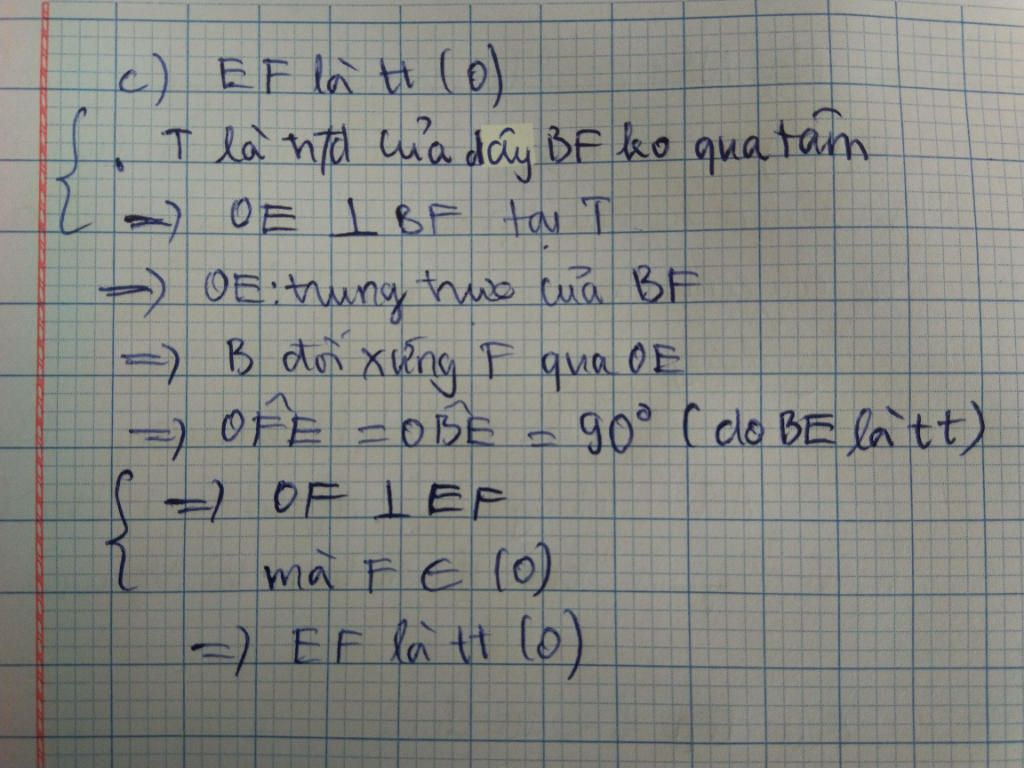 c) EF là tt (O)
. T là n/đ của dây BF ko qua tâm
=> OE ⊥ BF tại T
=> OE: trung trực của BF
=> B đối xứng F qua OE
=> OF̂E = OB̂E = 90° (do BE là tt)
=> OF ⊥ EF
mà F ∈ (O)
=> EF là tt (O)